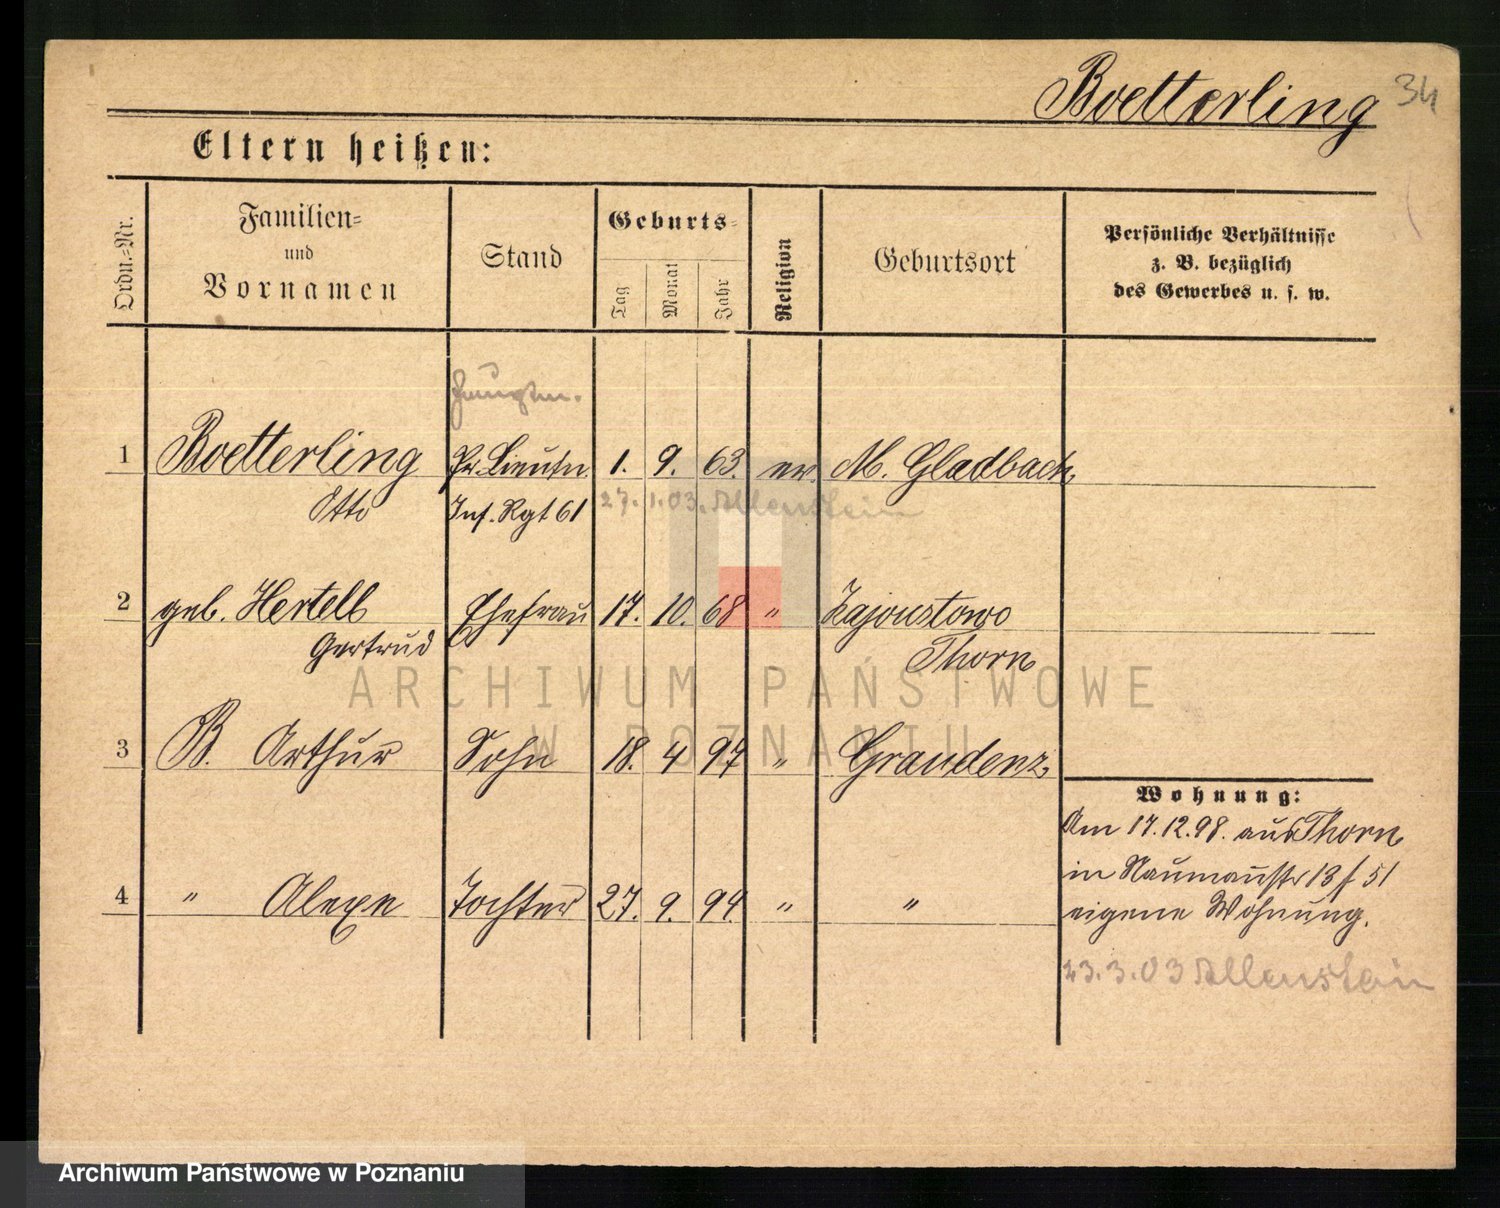 Boetterling 34
Eltern heißen:
Ordn.-Nr.
Familien-
und
Vornamen
Stand
Geburts-
Tag
Monat
Jahr
Religion
Geburtsort
Persönliche Verhältnisse
z. B. bezüglich
des Gewerbes u. s. w.
Hauptm.
1 Boetterling Pr. Lieutn. 1. 9. 63. ev. M. Gladbach
Otto Inf. Rgt 61 27. 1. 03. Allenstein
2 geb. Hertell Ehefrau 17. 10. 68 " Zajonstowo
Gertrud Thorn
3 B. Arthur Sohn 18. 4 97 " Graudenz
4 " Alexe Tochter 27. 9. 94. " "
Wohnung:
Am 17.12.98. aus Thorn
in Naumannstr 13 f 51
eigene Wohnung.
23.3.03 Allenstein
ARCHIWUM PAŃSTWOWE
W POZNANIU
Archiwum Państwowe w Poznaniu